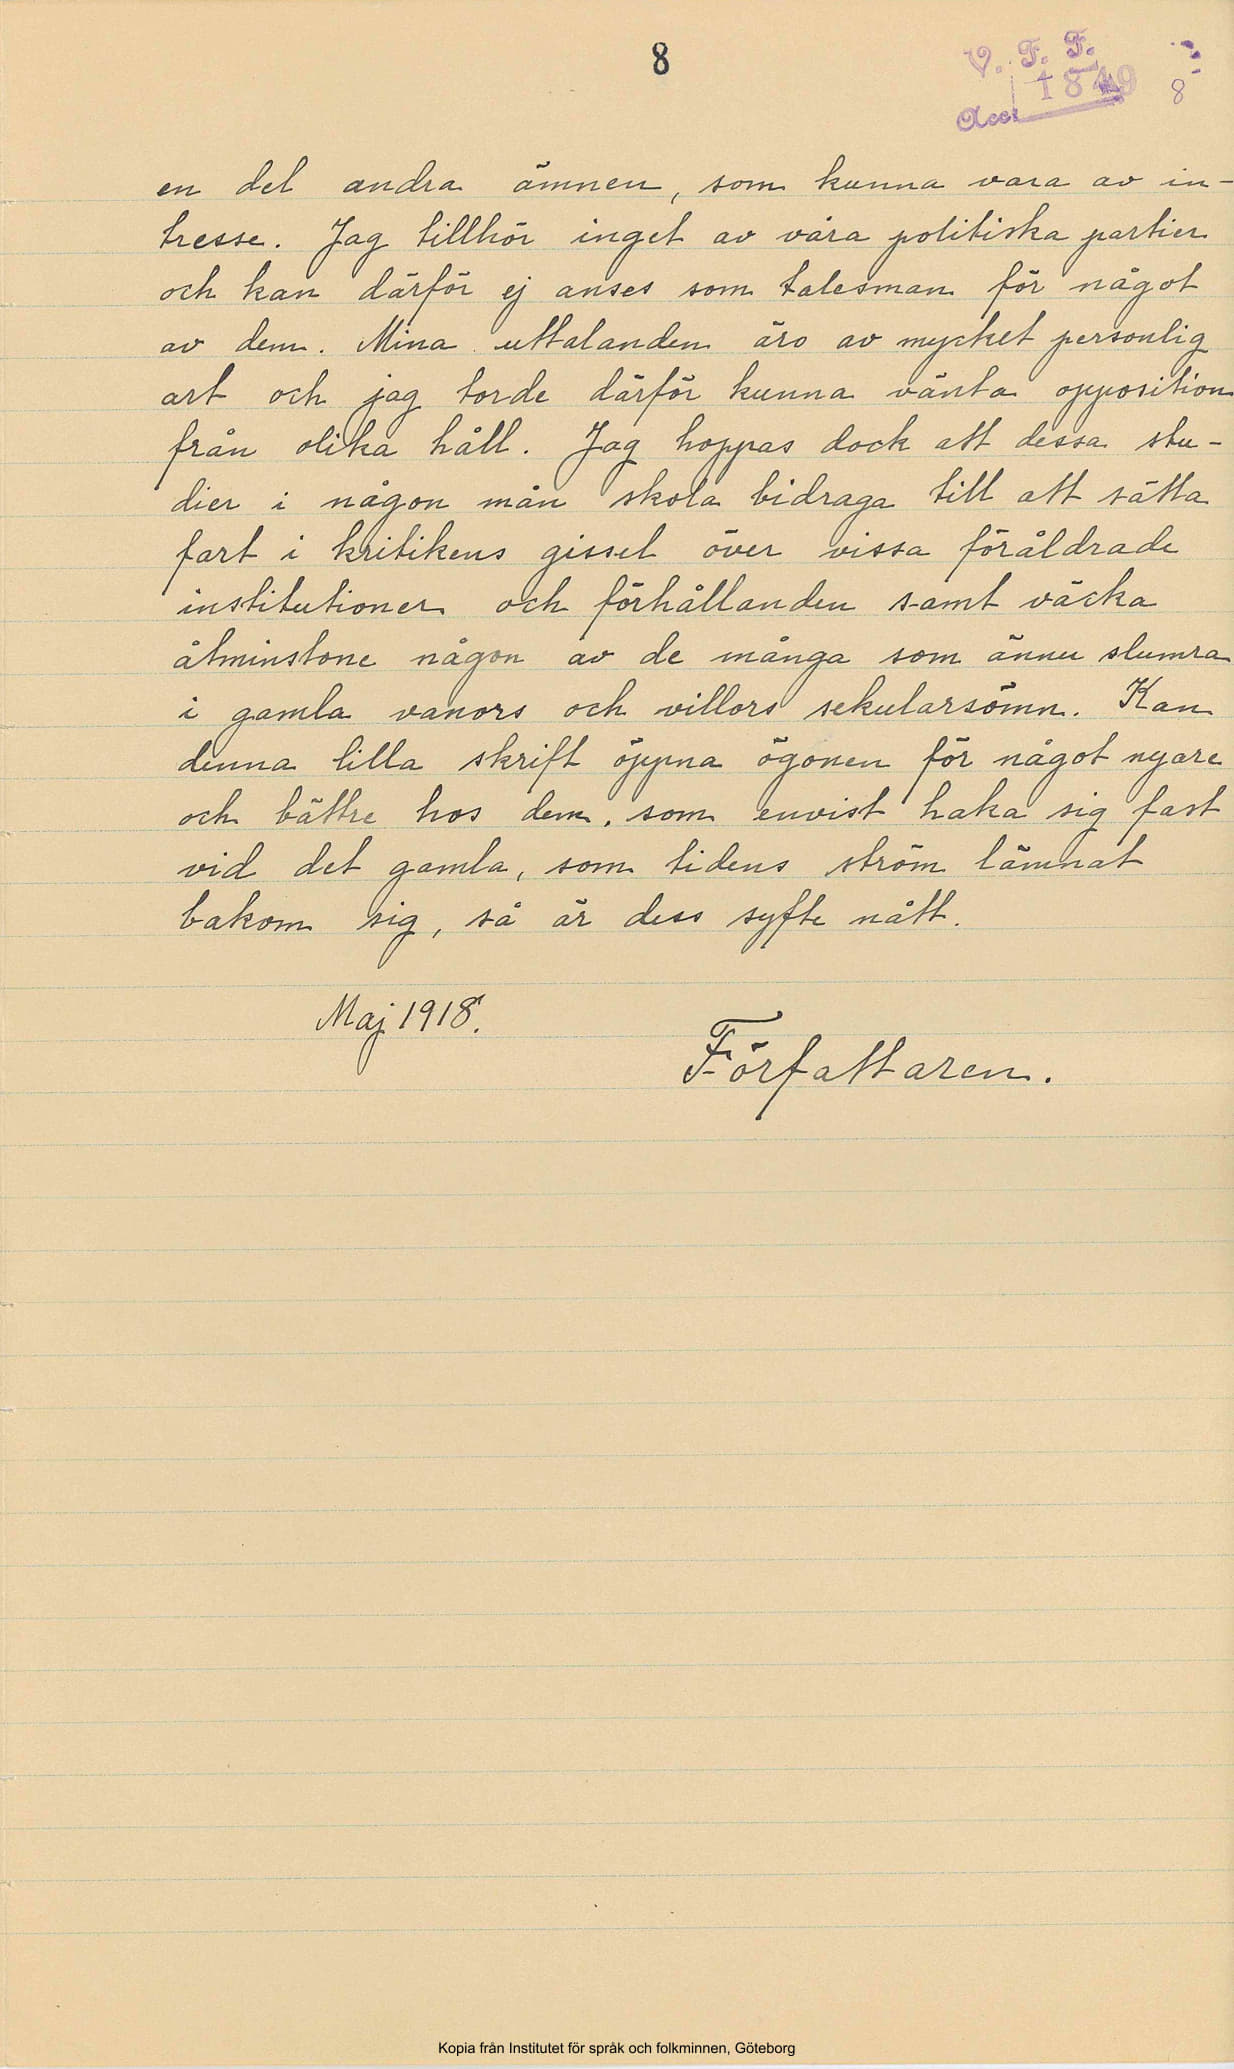 8
V. F. F.
1849 8
Acc.
en del andra ämnen, som kunna vara av in-
tresse. Jag tillhör inget av våra politiska partier
och kan därför ej anses som talesman för något
av dem. Mina uttalanden äro av mycket personlig
art och jag torde därför kunna vänta opposition
från olika håll. Jag hoppas dock att dessa stu-
dier i någon mån skola bidraga till att sätta
fart i kritikens gissel över vissa föråldrade
institutioner och förhållanden samt väcka
åtminstone någon av de många som ännu slumra
i gamla vanors och villors sekularsömn. Kan
denna lilla skrift öppna ögonen för något nyare
och bättre hos dem, som envist haka sig fast
vid det gamla, som tidens ström lämnat
bakom sig, så är dess syfte nått.
Maj 1918.
Författaren.
Kopia från Institutet för språk och folkminnen, Göteborg